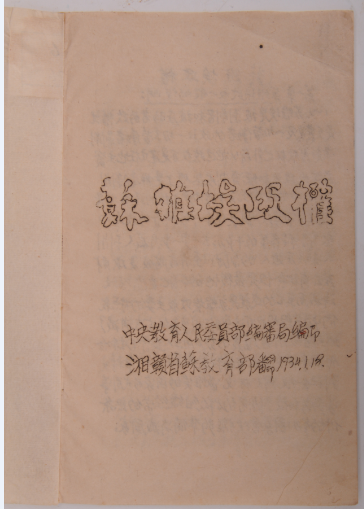 蘇維埃政權
中央教育人民委員部編審局編印
湘贛省蘇教育部翻印1934.1.18.